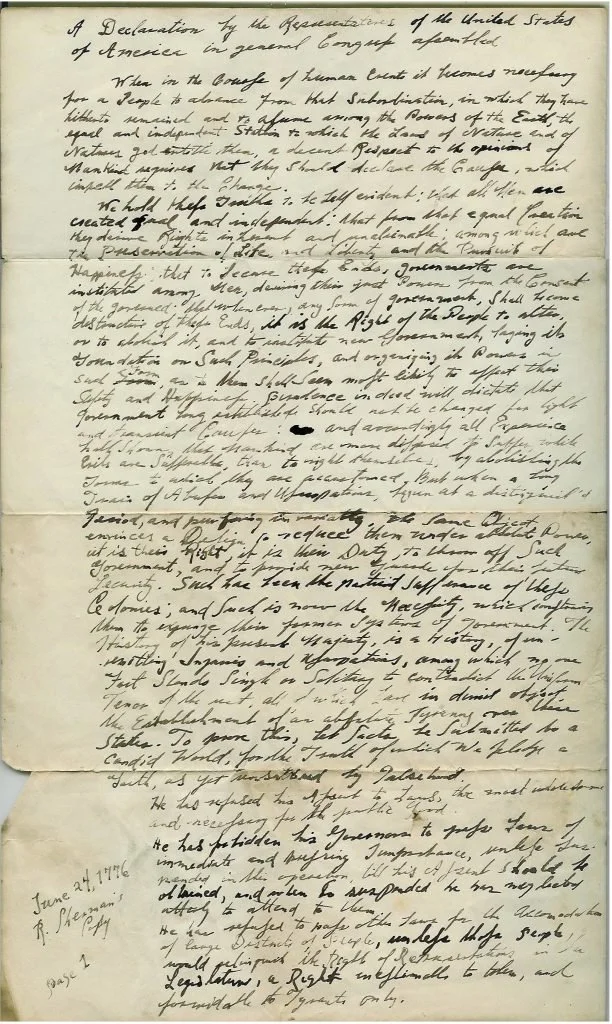 A Declaration by the Representatives of the United States
of America in general Congress assembled
When in the Course of human Events it becomes necessary
for a People to advance from that Subordination, in which they have
hitherto remained and to assume among the Powers of the Earth, the
equal and independent Station to which the Laws of Nature and of
Natures god entitle them, a decent Respect to the opinions of
Mankind requires that they Should declare the Causes, which
impell them to the Change.
We hold these Truths to be Self evident; that all Men are
created equal and independent; that from that equal Creation
they derive Rights inherent and unalienable; among which are
the Preservation of Life, and Liberty, and the Pursuit of
Happiness; that to Secure these Ends, governments are
instituted among Men, deriving their just Powers from the Consent
of the governed; that whenever, any form of government, Shall become
destructive of these Ends, it is the Right of the People to alter,
or to abolish it, and to institute new Government, laying its
Foundation on Such Principles, and organizing its Powers in
Such Form, as to them Shall Seem most likely to effect their
Safety and Happiness. Prudence indeed will dictate that
Governments long established Should not be changed for light
and transient Causes: and accordingly all Experience
hath Shown, that Mankind are more disposed to Suffer, while
Evils are Sufferable, than to right themselves, by abolishing the
Forms to which they are accustomed. But when a long
Train of Abuses and Usurpations, begun at a distinguish'd
Period, and pursuing invariably, the Same Object,
evinces a Design to reduce them under absolute Power,
it is their Right, it is their Duty, to throw off Such
Government, and to provide new Guards for their future
Security. Such has been the patient Sufferance of these
Colonies; and Such is now the Necessity, which constrains
them to expunge their former Systems of Government. The
History of his present Majesty, is a History, of un-
Injuries and Usurpations, among which no one
Fact Stands Single or Solitary to contradict the Uniform
Tenor of the rest, all of which have in direct object,
the Establishment of an absolute Tyranny over these
States. To prove this, let Facts be Submitted to a
Candid World, for the Truth of which We pledge a
Faith, as yet unsullied by Falsehood.
He has refused his Assent to Laws, the most wholesome
and necessary for the public Good.
He has forbidden his Governors to pass Laws of
immediate and pressing Importance, unless sus-
pended in their operation, till his Assent Should be
obtained; and when so suspended he has neglected
utterly to attend to them.
He has refused to pass other Laws for the Accomodation
of large Districts of People, unless those People
would relinquish the Right of Representation in the
Legislature, a Right inestimable to them, and
formidable to Tyrants only.
June 24, 1776
R. Sherman's
Copy
page 1